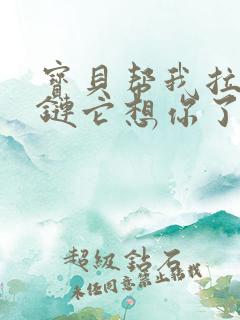 寳貝帮我拉
鏈它想你了
超級鈷石
未经同意禁止转载